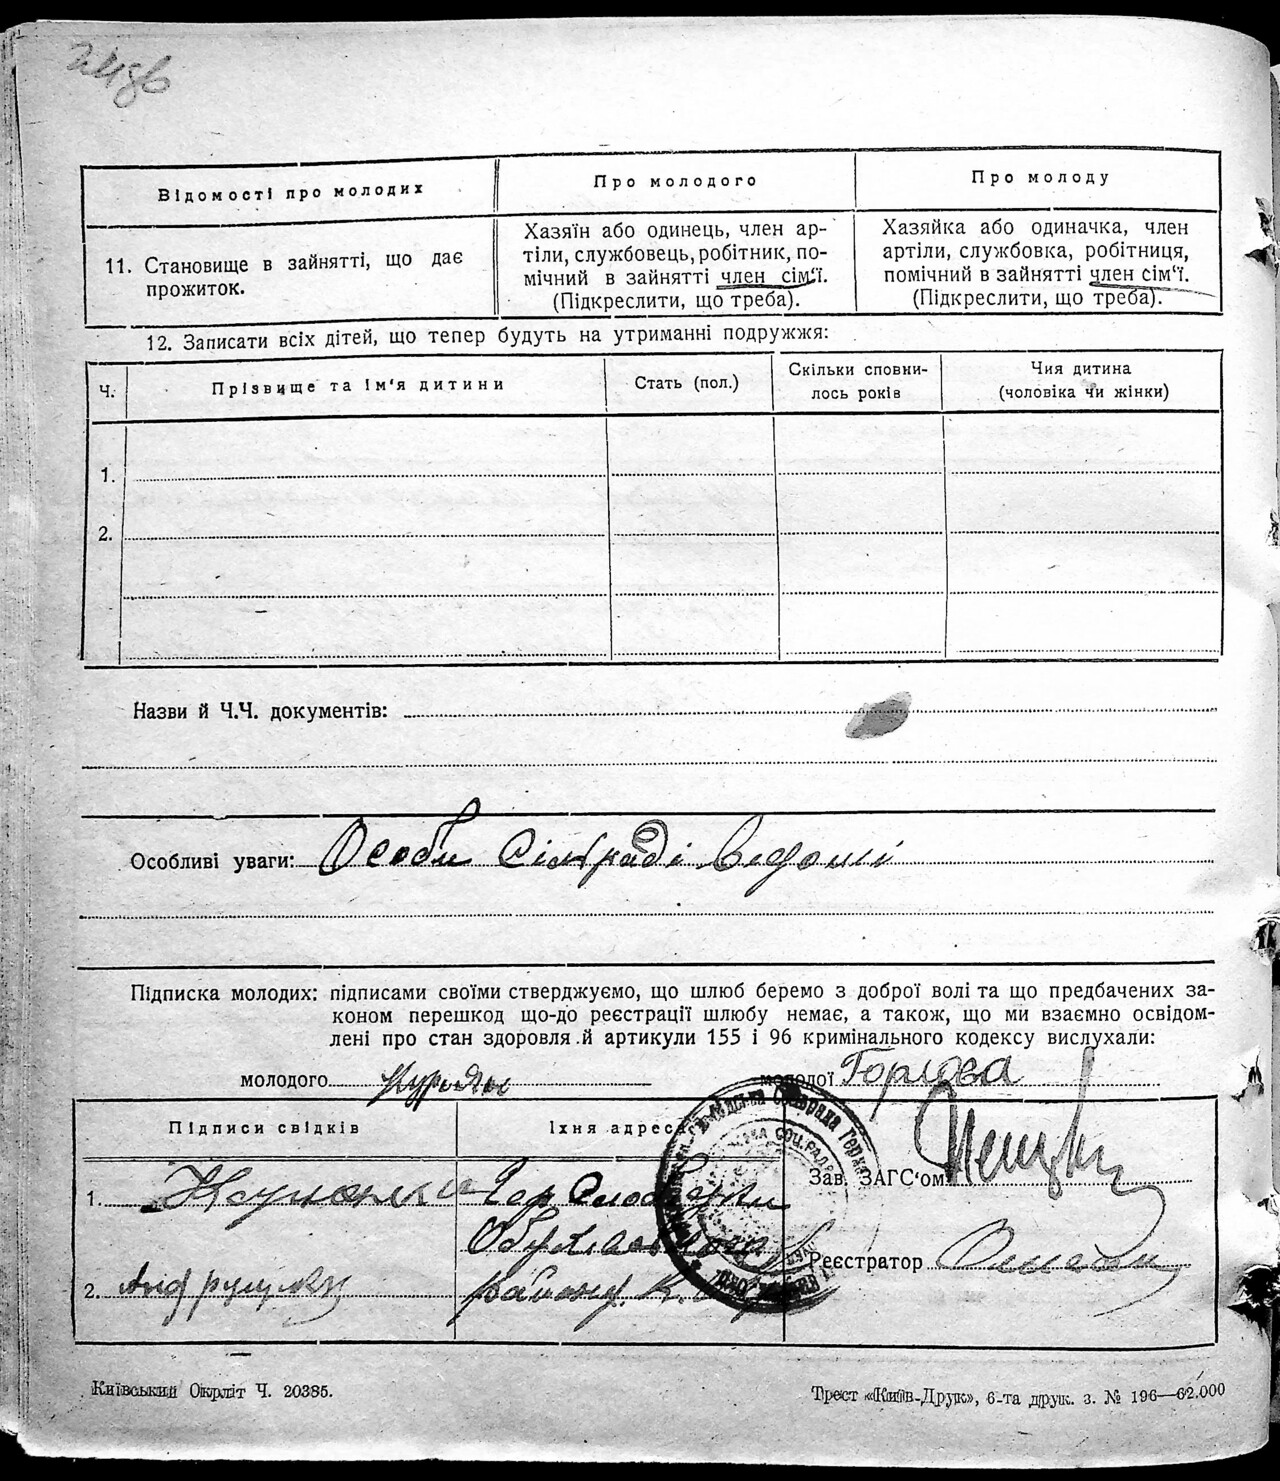 24зв
Відомості про молодих
Про молодого
Про молоду
11. Становище в зайнятті, що дає
прожиток.
Хазяїн або одинець, член ар-
тіли, службовець, робітник, по-
мічний в зайнятті член сім'ї.
(Підкреслити, що треба).
Хазяйка або одиначка, член
артіли, службовка, робітниця,
помічний в зайнятті член сім'ї.
(Підкреслити, що треба).
12. Записати всіх дітей, що тепер будуть на утриманні подружжя:
Ч.
Прізвище та ім'я дитини
Стать (пол.)
Скільки сповни-
лось років
Чия дитина
(чоловіка чи жінки)
1.
2.
Назви й Ч.Ч. документів:
Особливі уваги: Особи Сільраді ведомі
Підписка молодих: підписами своїми стверджуємо, що шлюб беремо з доброї волі та що предбачених за-
коном перешкод що-до реєстрації шлюбу немає, а також, що ми взаємно освідом-
лені про стан здоровля й артикули 155 і 96 кримінального кодексу вислухали:
молодого
молодої Горлова
Підписи свідків
Їхня адреса
1.
Обухівського
2. Андрущенко
району К.
Зав. ЗАГС'ом
Реєстратор
Київський Окрліт Ч. 20385.
Трест «Київ-Друк», 6-та друк. з. № 196—62.000